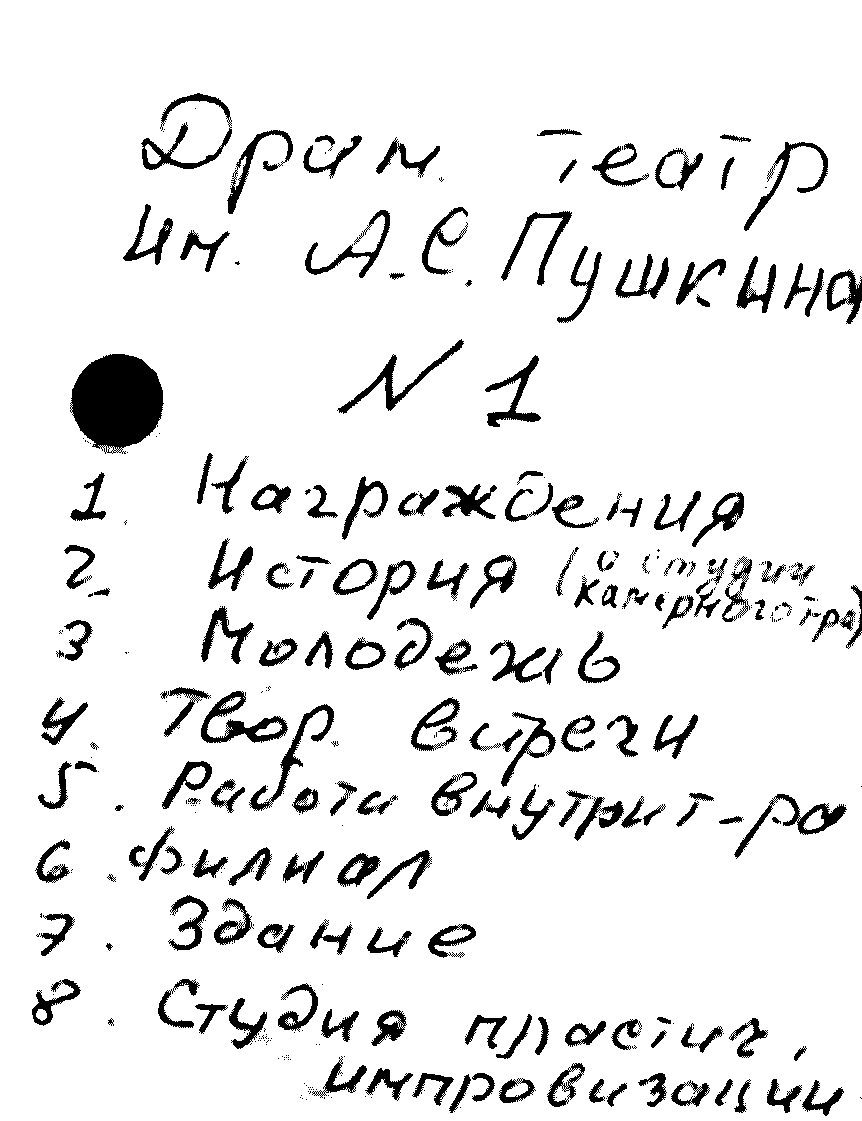 Драм. театр
им. А.С. Пушкина
N 1
1. Награждения
2. История (о студии
камерного т-ра)
3. Молодежь
4. Твор. встречи
5. Работа внутри т-ра
6. Филиал
7. Здание
8. Студия пластич.
импровизации